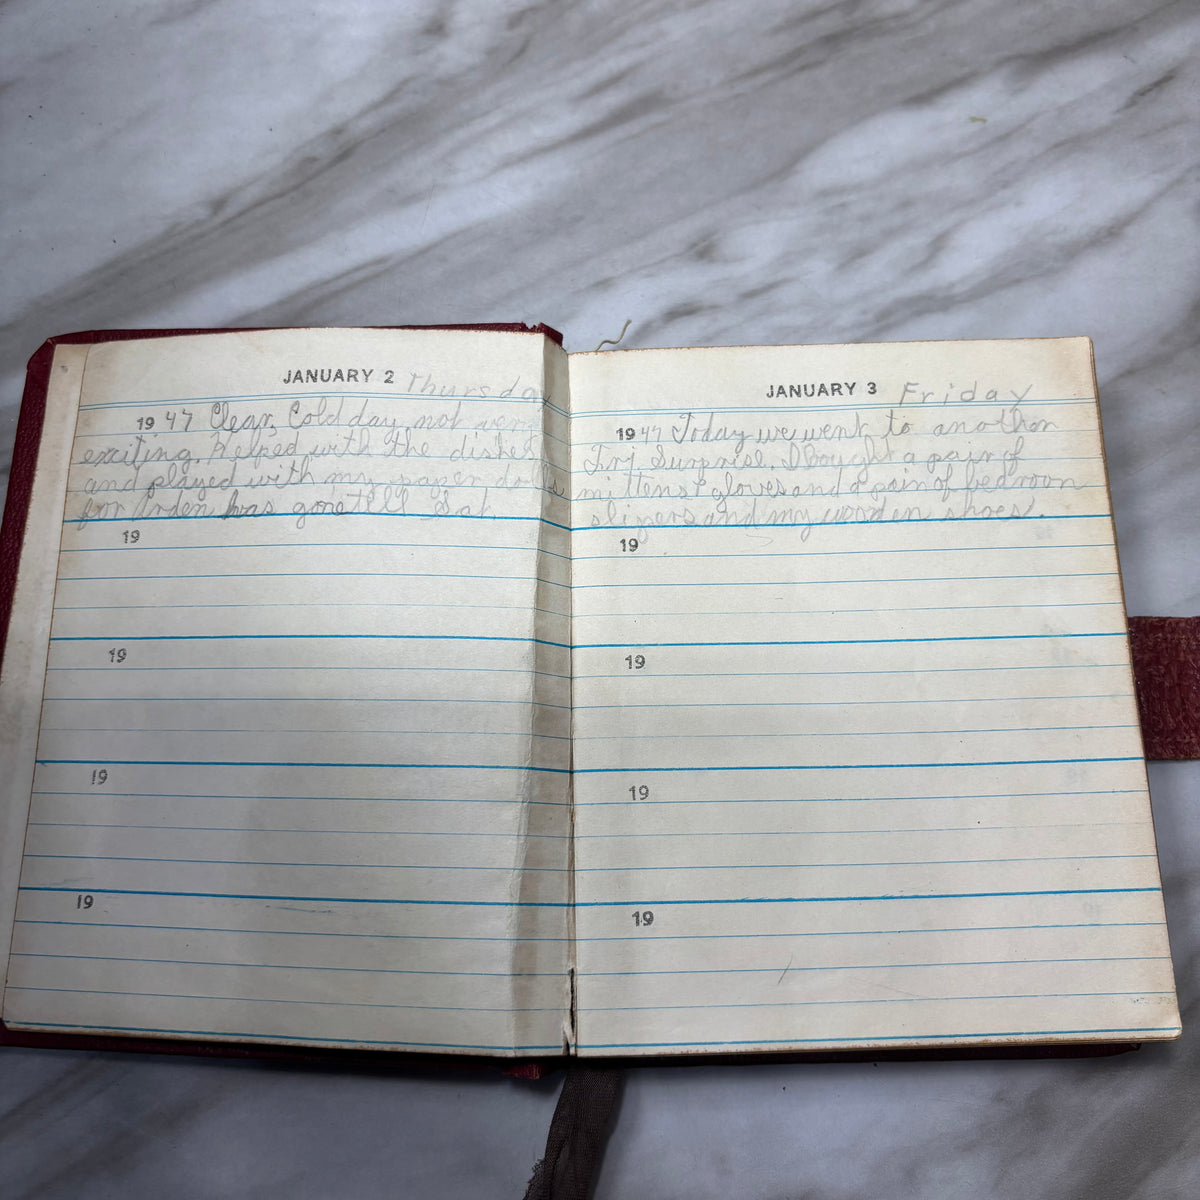 JANUARY 2 Thursday
19 47 Clear, Cold day, not very
exciting. Helped with the dishes
and played with my paper dolls
for Arden has gone till Sat.
19
19
19
19
JANUARY 3 Friday
19 47 Today we went to another
Fri. Surprise. I bought a pair of
mittens & gloves and a pair of bedroom
slippers and my wooden shoes.
19
19
19
19